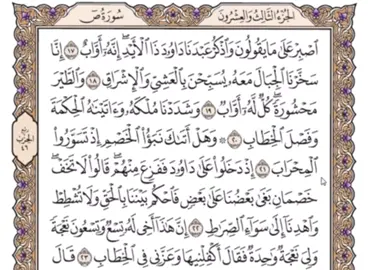 الجزء الثالث والعشرون
سورة ص
اَصْبِرْ عَلَىٰ مَا يَقُولُونَ وَاذْكُرْ عَبْدَنَا دَاوُۥدَ ذَا الْأَيْدِ إِنَّهُۥٓ أَوَّابٌ ١٧ إِنَّا
سَخَّرْنَا الْجِبَالَ مَعَهُۥ يُسَبِّحْنَ بِالْعَشِيِّ وَالْإِشْرَاقِ ١٨ وَالطَّيْرَ
مَحْشُورَةً كُلٌّ لَّهُۥٓ أَوَّابٌ ١٩ وَشَدَدْنَا مُلْكَهُۥ وَءَاتَيْنَٰهُ الْحِكْمَةَ
وَفَصْلَ الْخِطَابِ ٢٠ وَهَلْ أَتَىٰكَ نَبَؤُا الْخَصْمِ إِذْ تَسَوَّرُوا
الْمِحْرَابَ ٢١ إِذْ دَخَلُوا عَلَىٰ دَاوُۥدَ فَفَزِعَ مِنْهُمْ قَالُوا لَا تَخَفْ
خَصْمَانِ بَغَىٰ بَعْضُنَا عَلَىٰ بَعْضٍ فَاحْكُم بَيْنَنَا بِالْحَقِّ وَلَا تُشْطِطْ
وَاهْدِنَآ إِلَىٰ سَوَآءِ الصِّرَٰطِ ٢٢ إِنَّ هَٰذَآ أَخِي لَهُۥ تِسْعٌ وَتِسْعُونَ نَعْجَةً
وَلِيَ نَعْجَةٌ وَٰحِدَةٌ فَقَالَ أَكْفِلْنِيهَا وَعَزَّنِي فِي الْخِطَابِ ٢٣ قَالَ